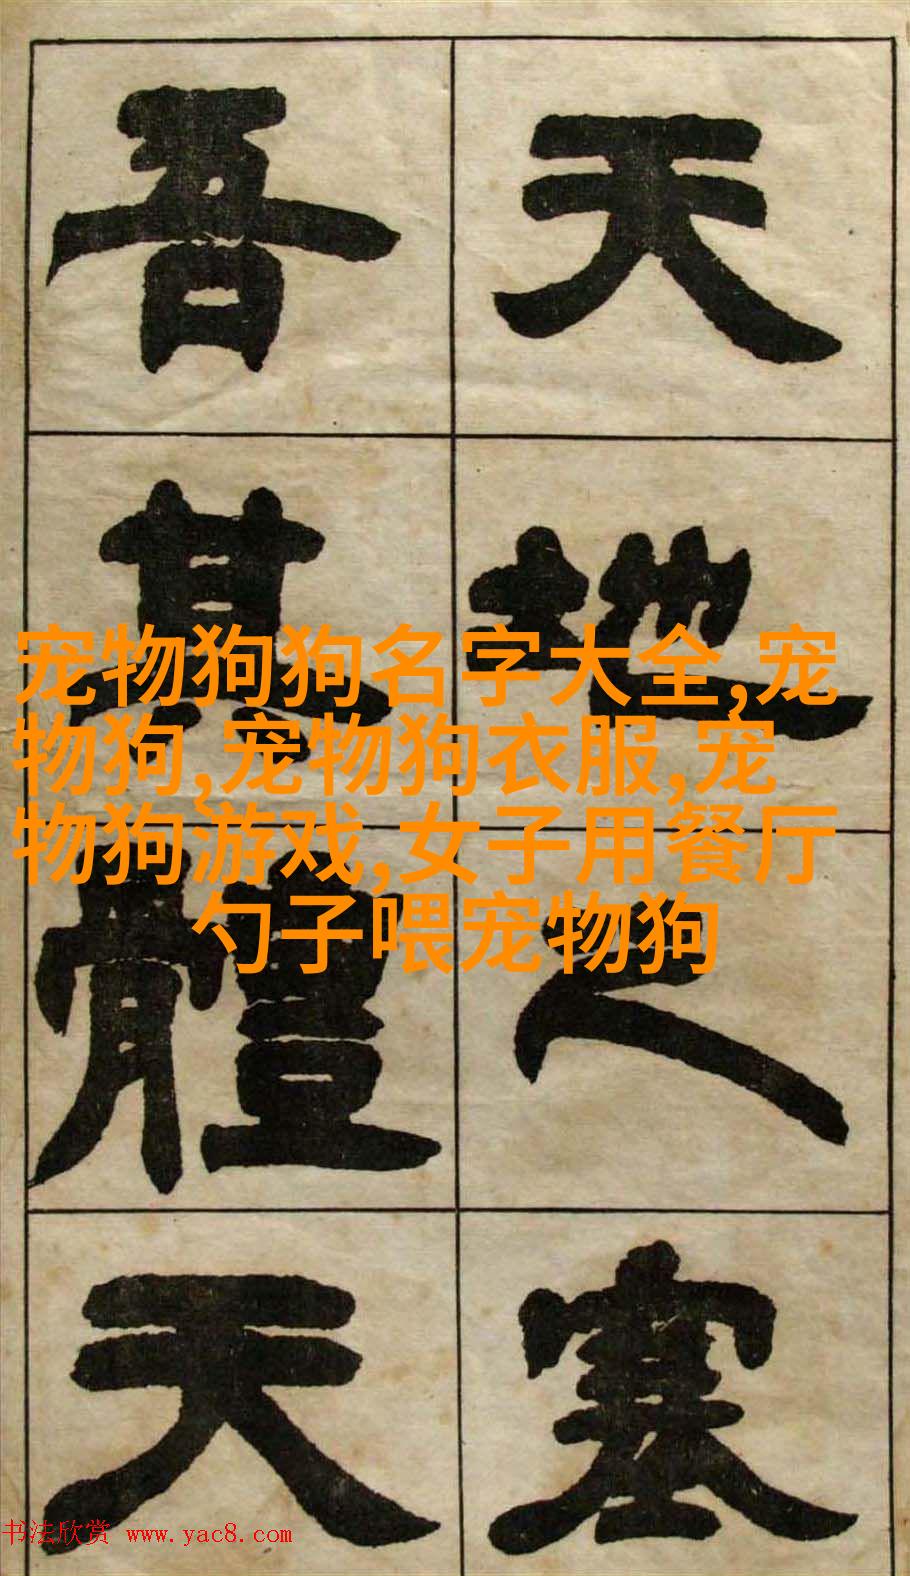 天地之塞
吾其體天
宠物狗狗名字大全,宠
物狗,宠物狗衣服,宠
物狗游戏,女子用餐厅
勺子喂宠物狗
书法欣赏 www.yac8.com